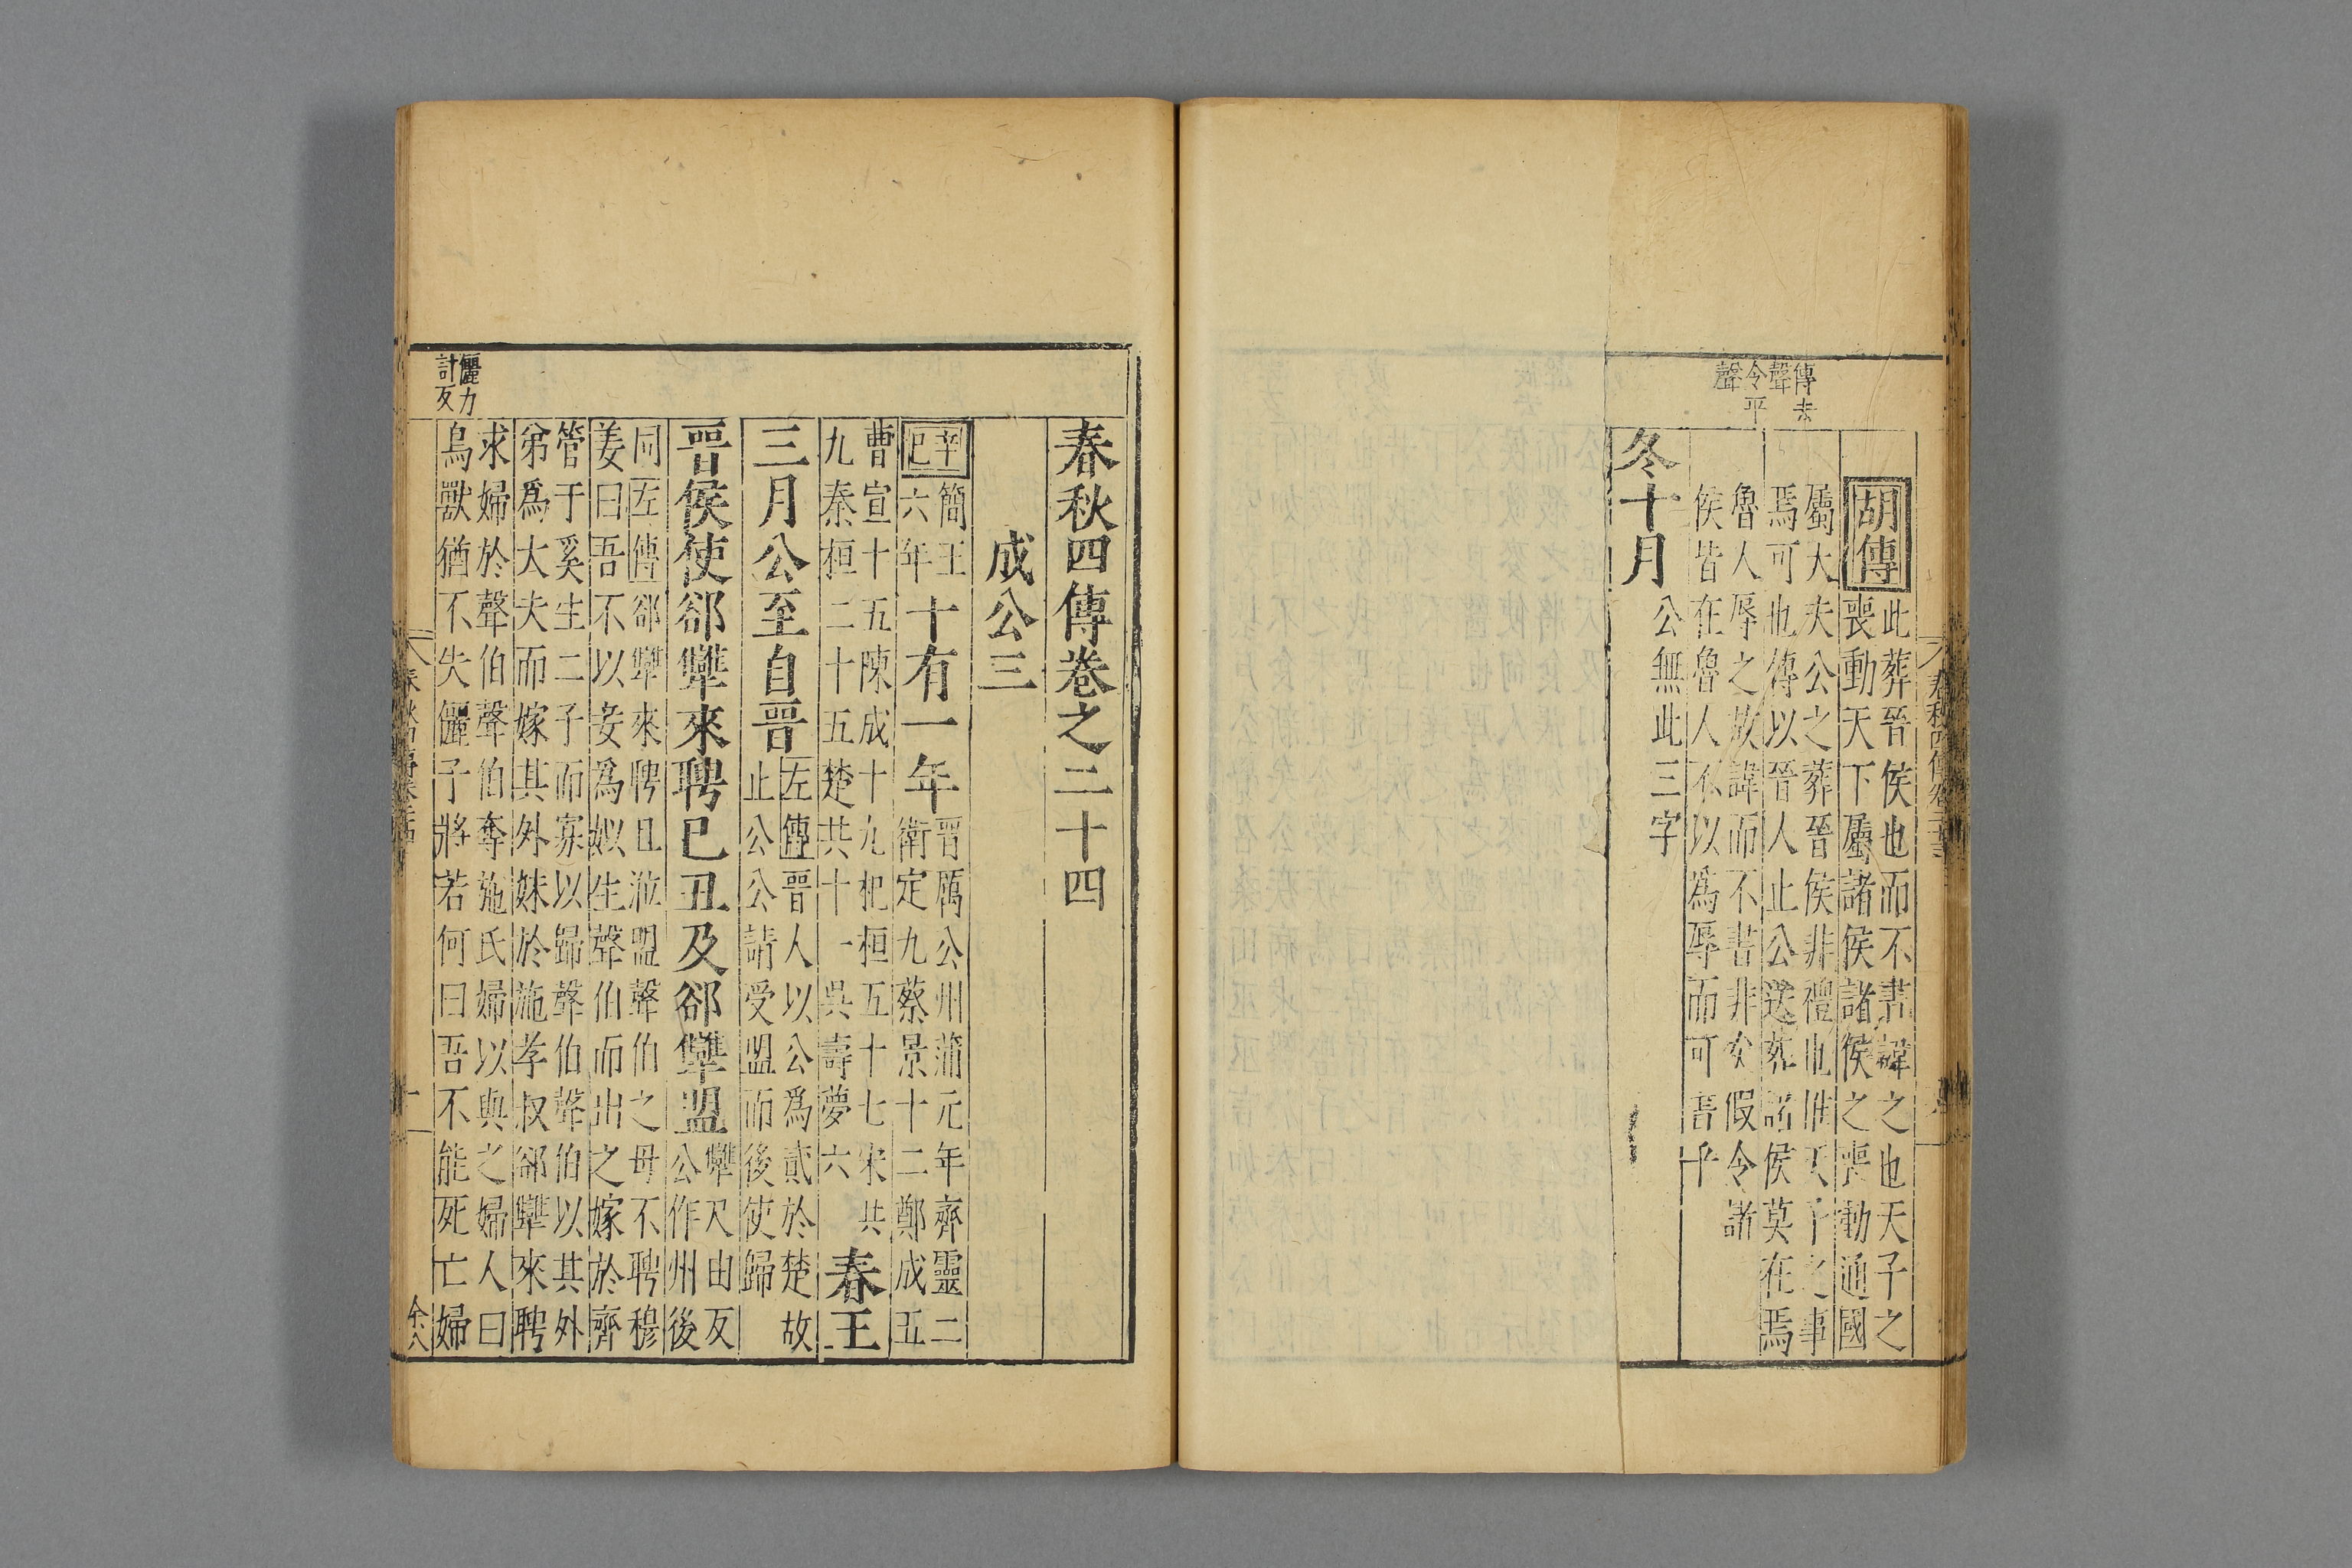 傳去
聲
令平
聲
胡傳
此葬晉侯也而不書諱之也天子之
喪動天下屬諸侯諸侯之喪動通國
屬大夫公之葬晉侯非禮也惟天子之事
焉可也傳以晉人止公送葬諸侯莫在焉
魯人辱之故諱而不書非也假令諸
侯皆在魯人不以爲辱而可書乎
冬十月
公無此三字
春秋四傳卷之二十四
成公三
辛
巳
簡王
六年
十有一年
晋厲公州蒲元年齊靈二
衛定九蔡景十二鄭成五
曹宣十五陳成十九杞桓五十七宋共
九秦桓二十五楚共十一吳壽夢六
春王
三月公至自晋
左傳晋人以公爲貳於楚故
止公公請受盟而後使歸
晋侯使郤犨來聘巳丑及郤犨盟
犨尺由反
公作州後
同左傳郤犨來聘且涖盟聲伯之母不聘穆
姜曰吾不以妾爲姒生聲伯而出之嫁於齊
管于奚生二子而寡以歸聲伯聲伯以其外
弟爲大夫而嫁其外妹於施孝叔郤犨來聘
求婦於聲伯聲伯奪施氏婦以與之婦人曰
鳥獸猶不失儷子將若何曰吾不能死亡婦
儷力
計反